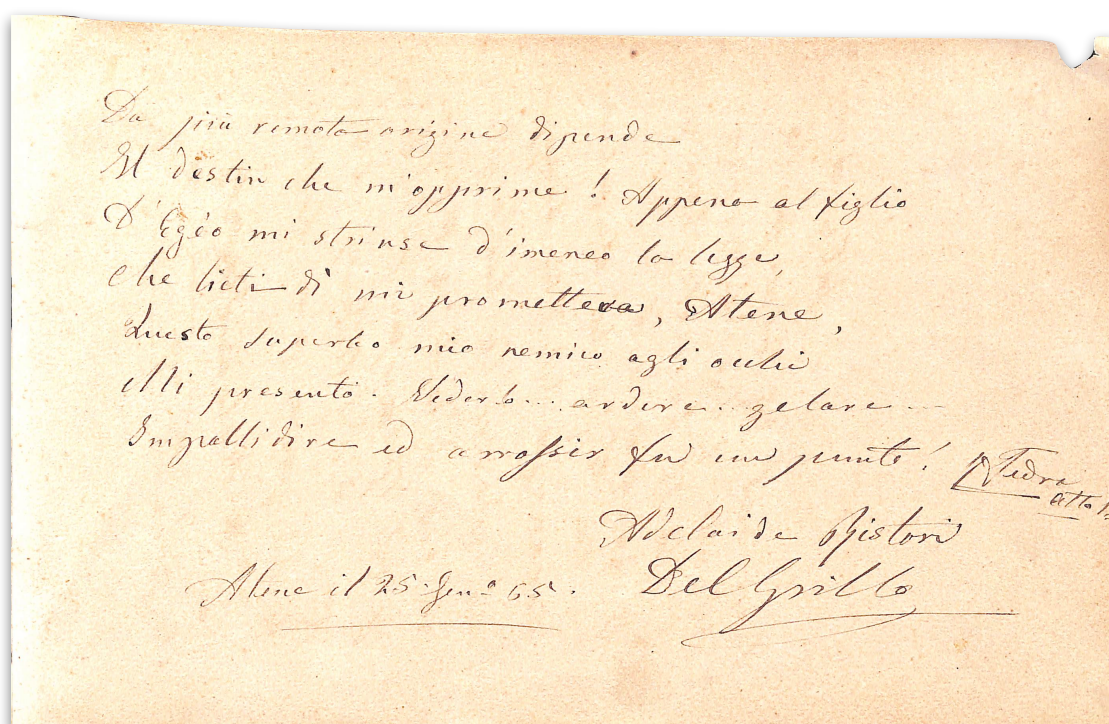 Da più remota origine dipende
Il destin che m'opprime! Appena al figlio
D'Egéo mi strinse d'imeneo la legge,
Che lieti dì mi prometteva, Atene,
Questo superbo mio nemico agli occhi
Mi presentò. Vederlo... ardere... gelare...
Impallidire ed arrossir fu un punto!
Fedra
Atto
Adelaide Ristori
Del Grillo
Atene il 25 Genº 65.